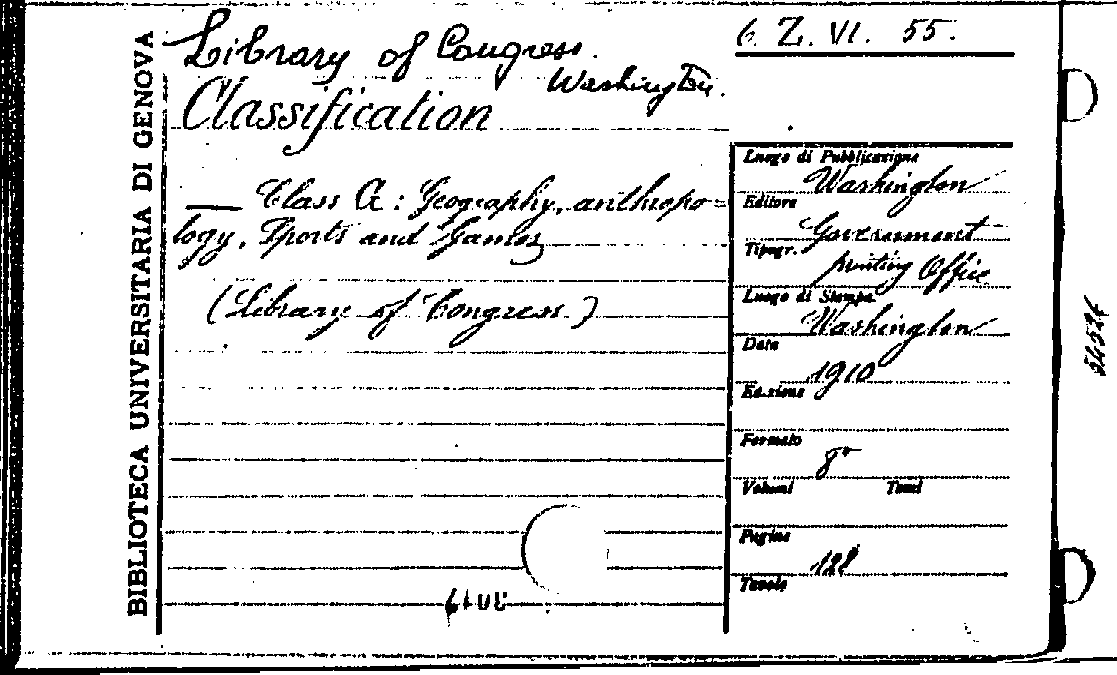 BIBLIOTECA UNIVERSITARIA DI GENOVA
Library of Congress.
Washington.
Classification
— Class G : Geography, anthropo=
logy, Sports and Games
(Library of Congress)
6. Z. VI. 55.
Luogo di Pubblicazione
Washington
Editore
Government
Tipogr.
printing Office
Luogo di Stampa
Washington
Data
1910
Edizione
Formato
8°
Volumi Tomi
Pagine
128
Tavole